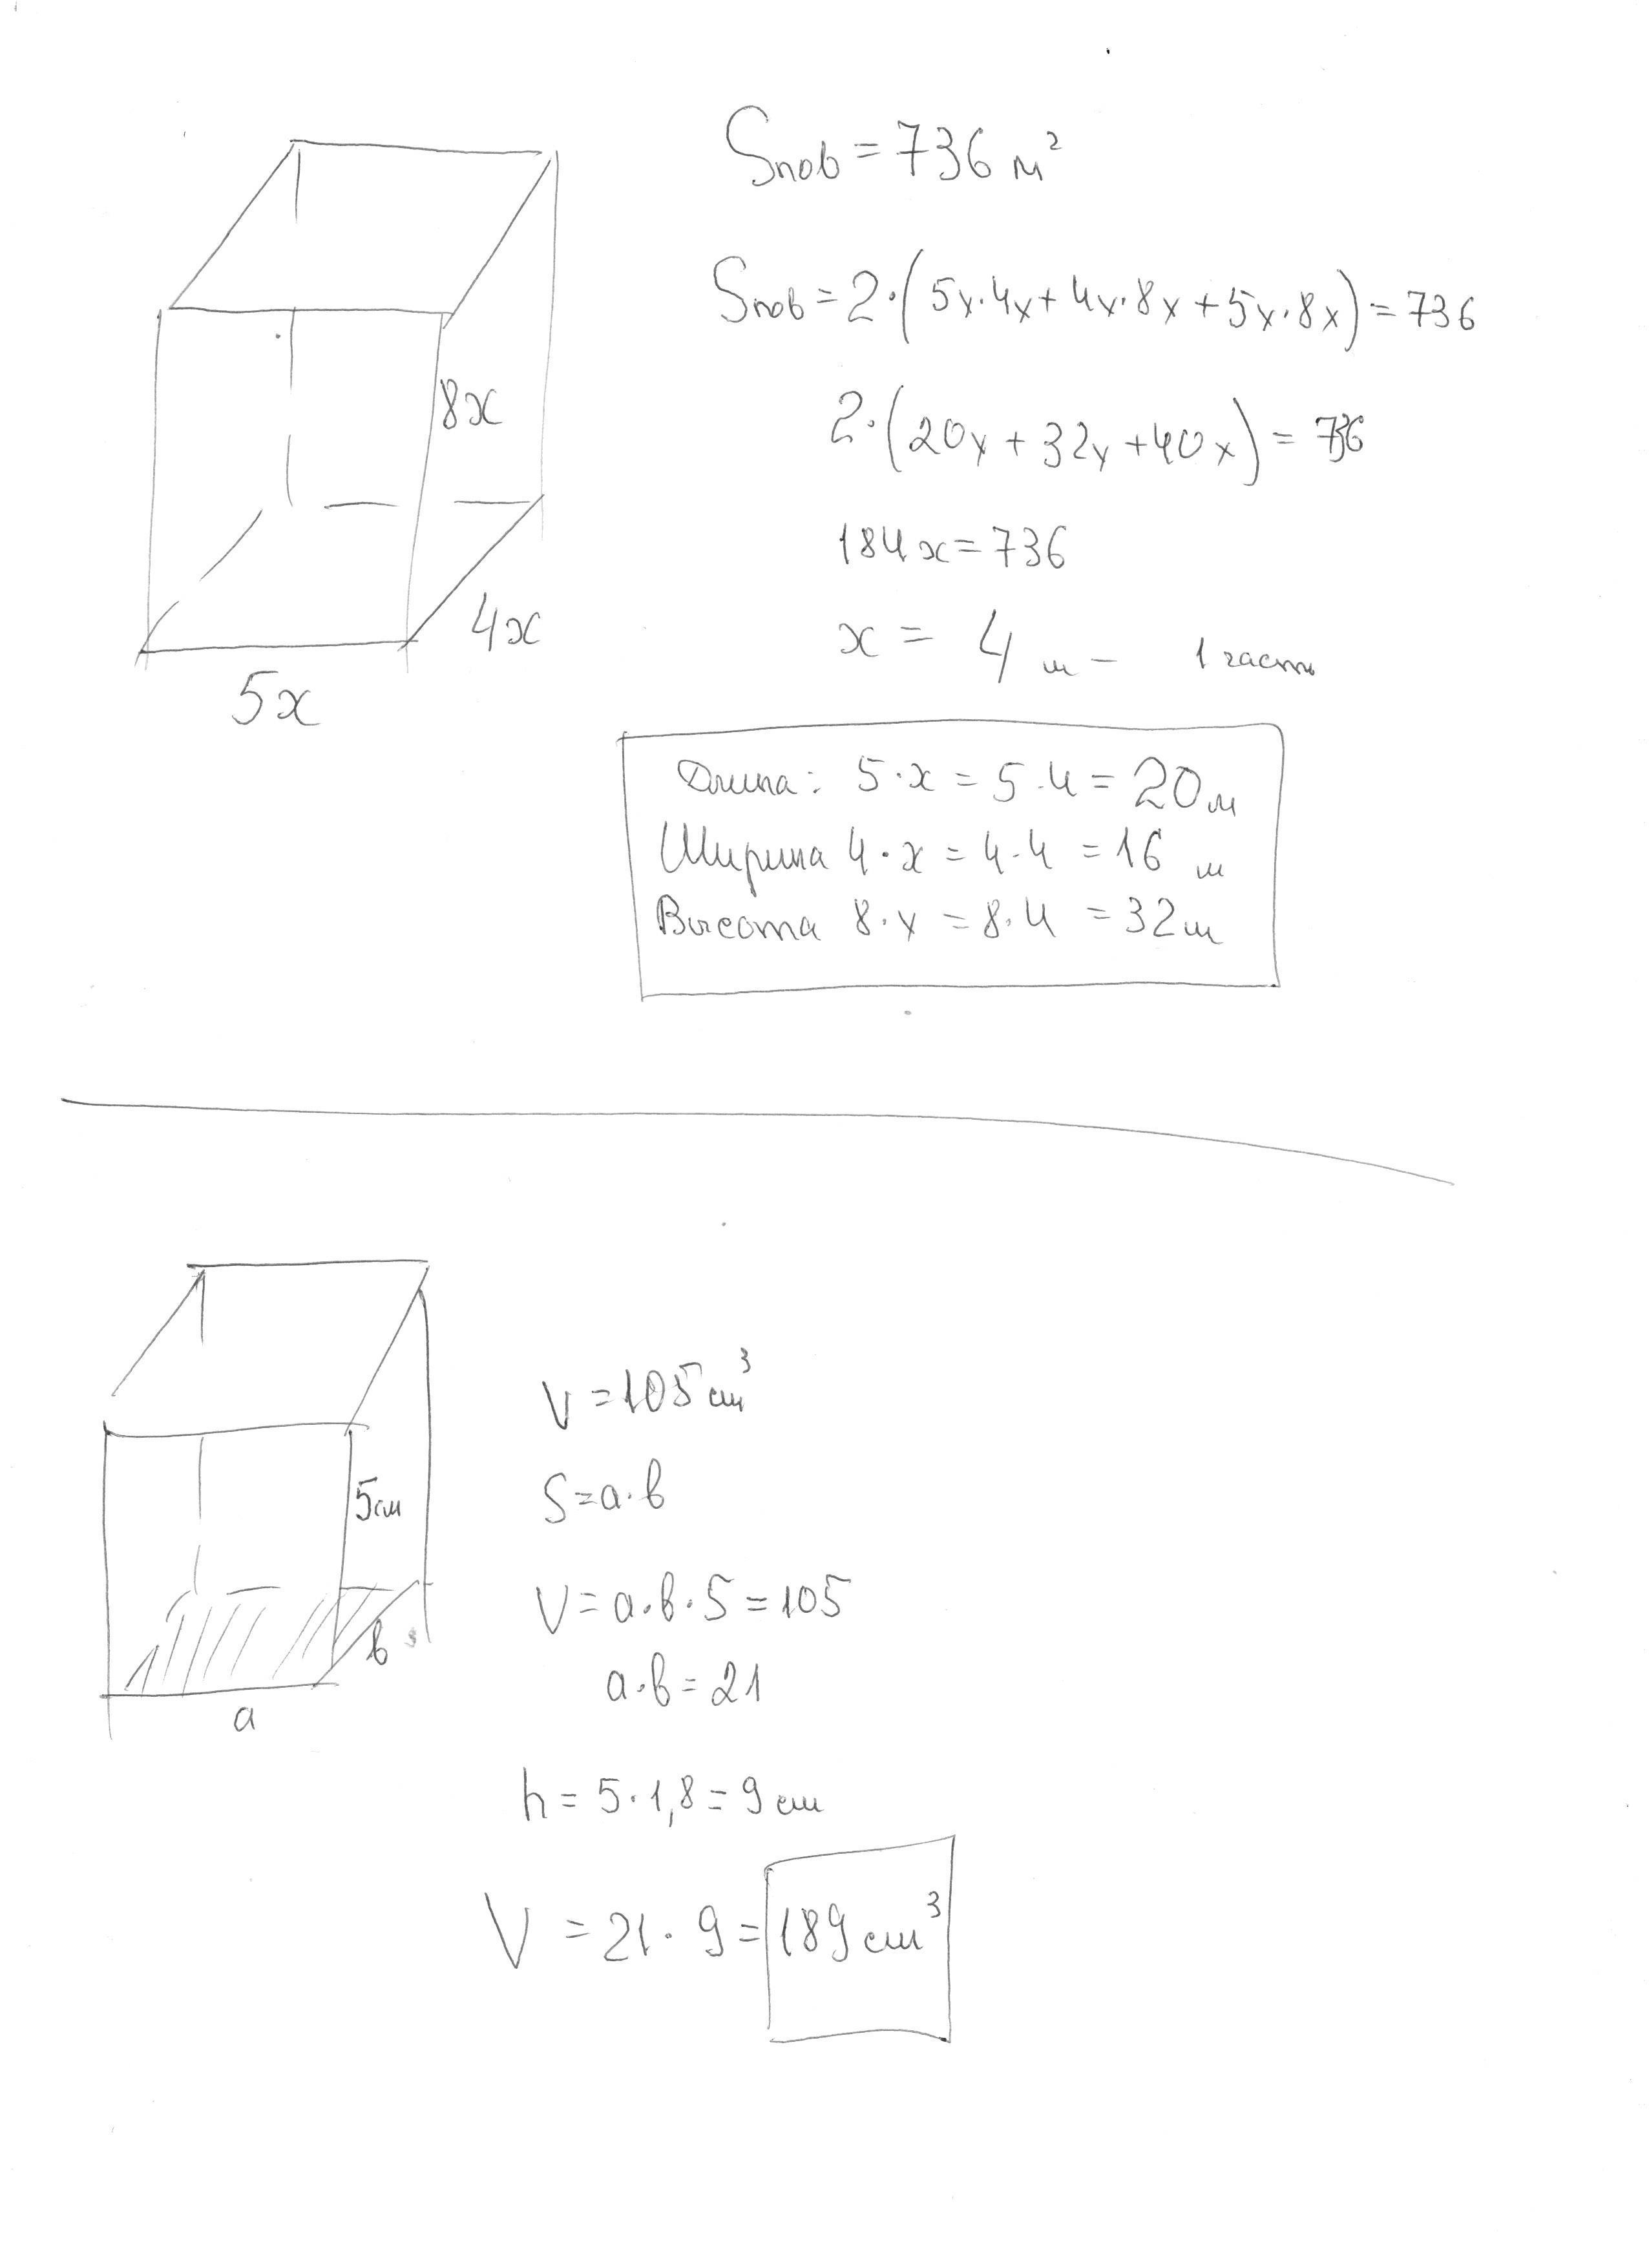 Sпов = 736 м²
Sпов = 2·(5x·4x + 4x·8x + 5x·8x) = 736
2·(20x + 32x + 40x) = 736
184x = 736
x = 4 м – 1 часть
8x
4x
5x
Длина: 5·x = 5·4 = 20 м
Ширина 4·x = 4·4 = 16 м
Высота 8·x = 8·4 = 32 м
V = 105 см³
S = a·b
5 см
V = a·b·5 = 105
b
a·b = 21
a
h = 5·1,8 = 9 см
V = 21·9 = 189 см³